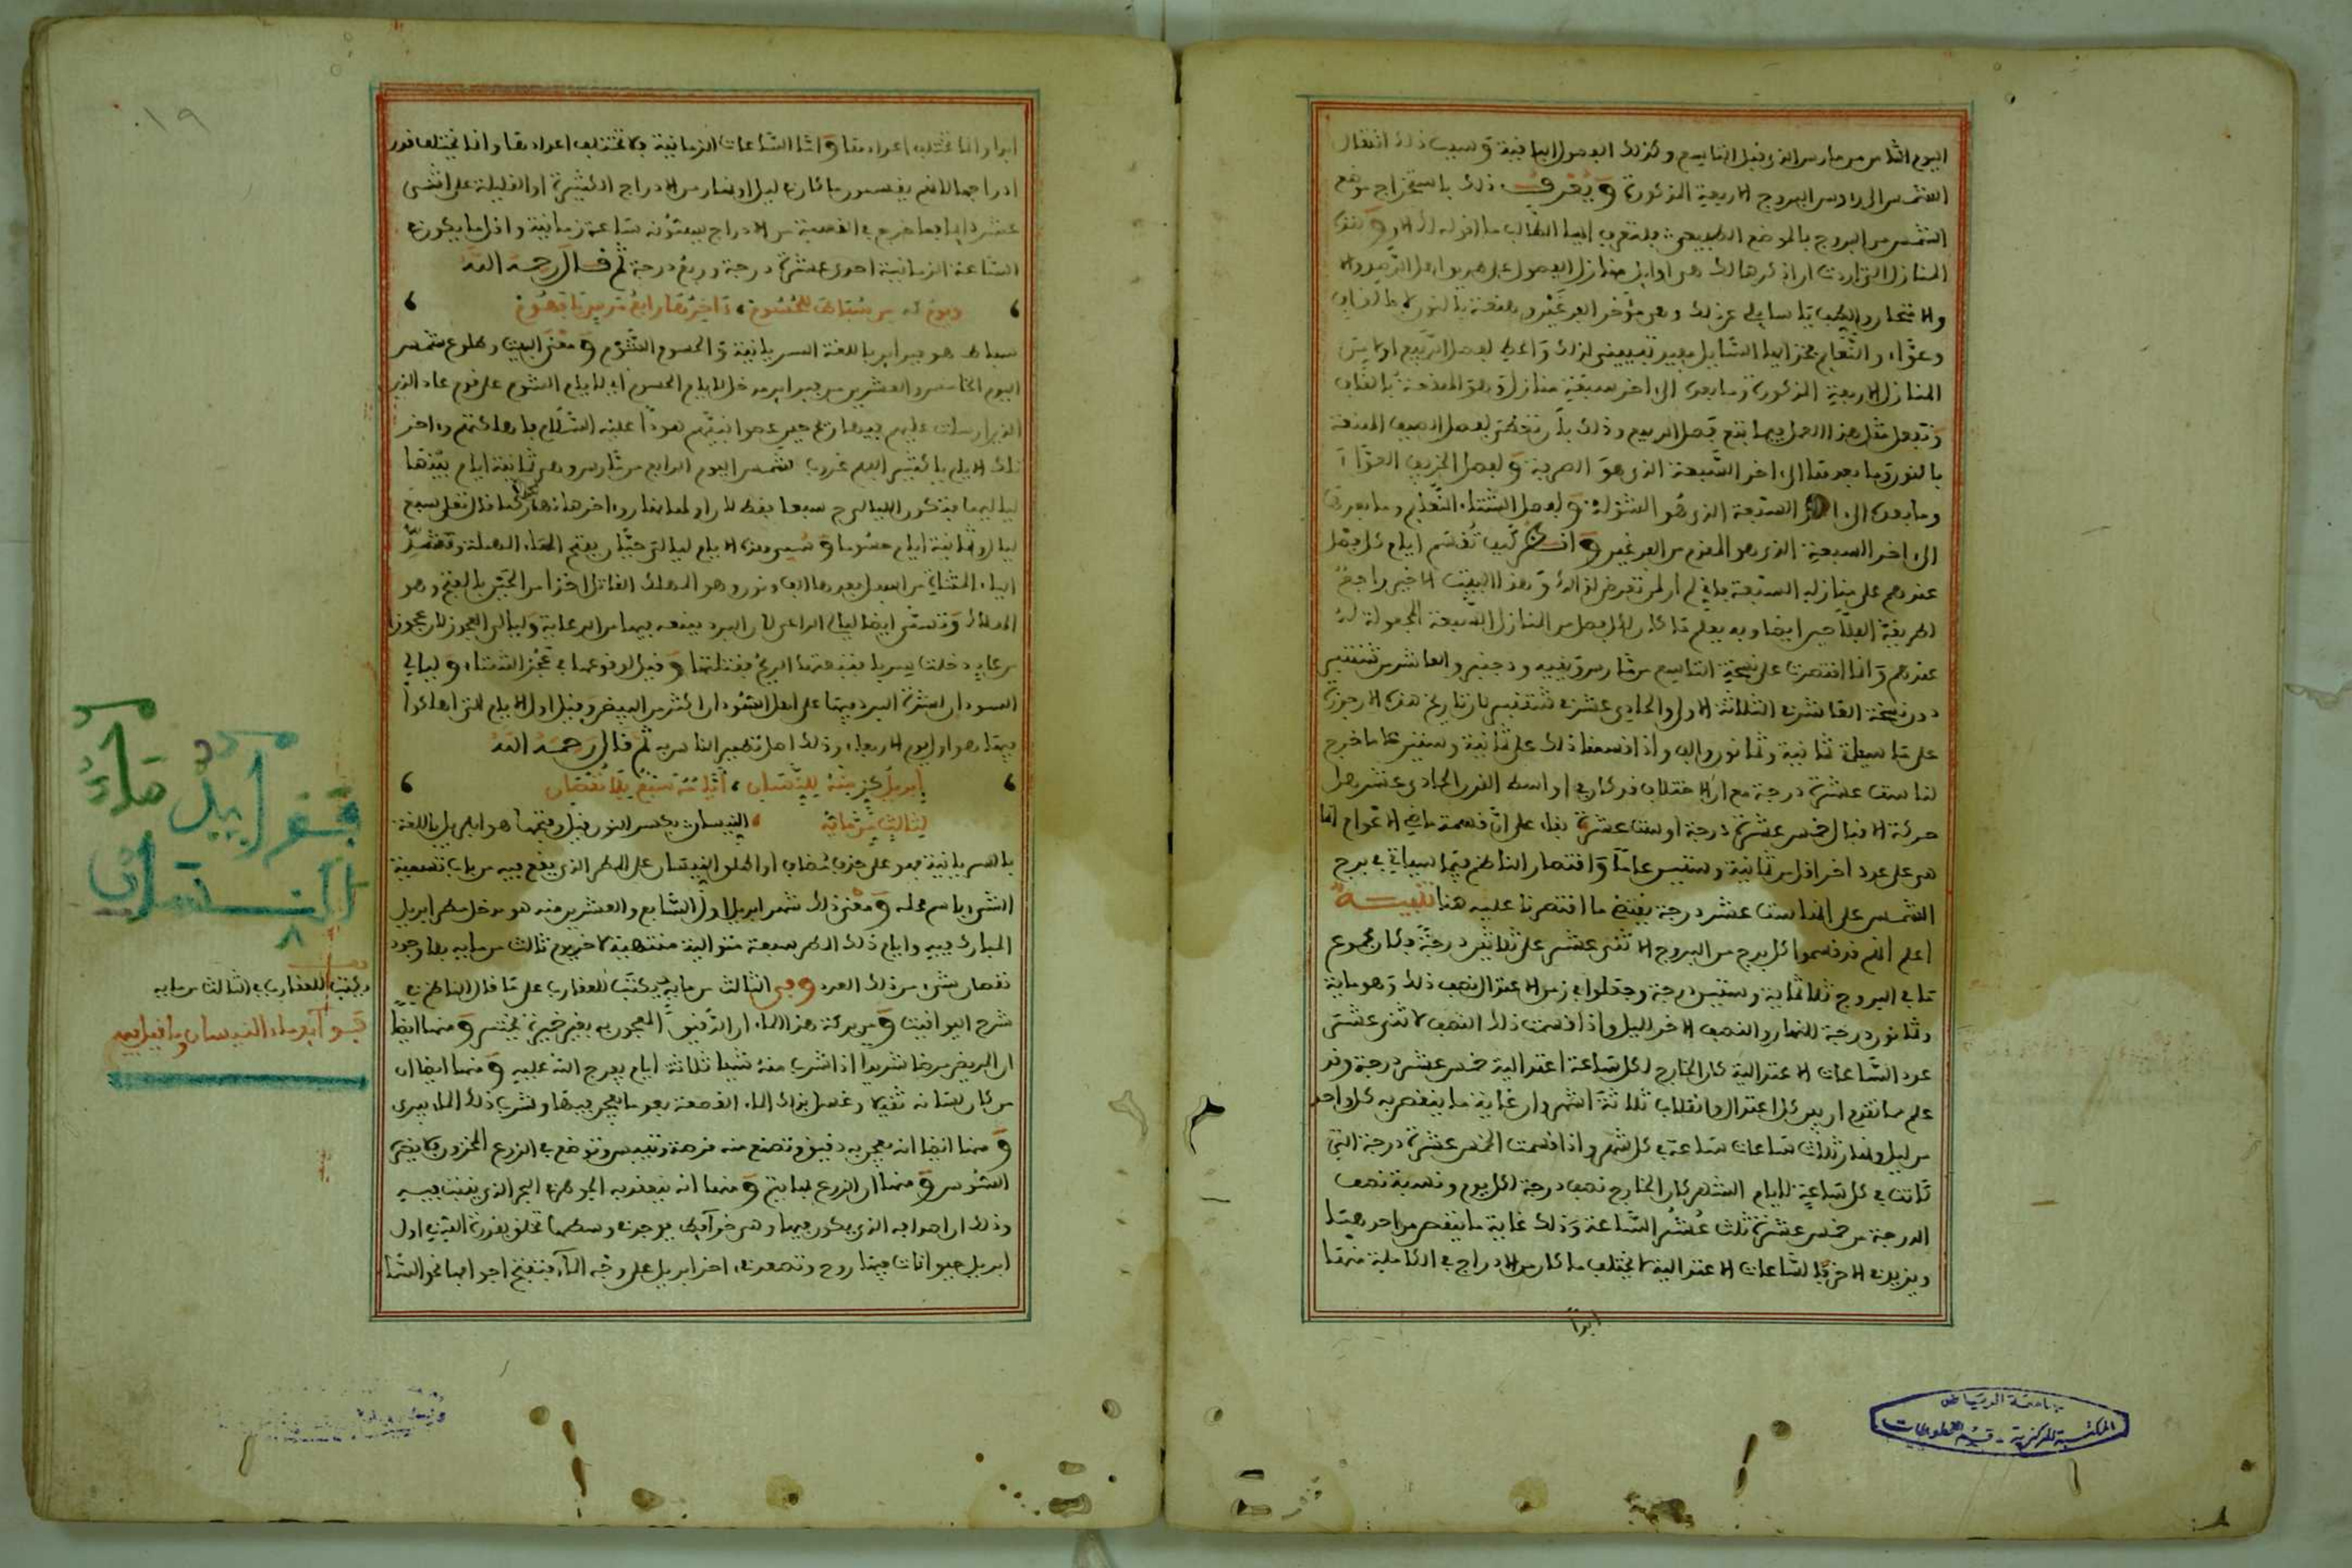 اليوم الثامن من مارس الذي قبل التاسع وكذلك الفصول الباقية وسبب ذلك انتقال
الشمس الى رءوس البروج الاربعة المذكورة ويعرف ذلك باستخراج موضع
الشمس من البروج بالموضع الطبيعي ايها الطالب ما اقوله لك الان وهو
المنازل التي اردت ان اذكرها لك هي اوايل منازل الفصول
يا سايلي عن ذلك وهي مؤخر الفرغين وهقعة بالنون
وعوّاء والنعايم فخذ ايها السايل بغير تعيين لذلك واعط لفصل الربيع اولا من
المنازل الاربعة المذكورة وما بعده الى اخر سبعة منازل وهو
وتفعل مثل هذا العمل فيما يتبع فصل الربيع وذلك بان تعطي لفصل الصيف الهقعة
بالنون وما بعدها الى اخر السبعة الذي هو الصرفة ولفصل الخريف العوّاء
وما بعده الى اخر السبعة الذي هو الشولة ولفصل الشتاء النعايم وما بعده
الى اخر السبعة الذي هو المقدم من الفرغين وانظر كيف تقسم ايام كل فصل
عندهم على منازله السبعة فاني لم ار من تعرض لذلك وهذا البيت الاخير راجع
لطريقة الفلاحين ايضا وبه يعلم ما كان لكل فصل من المنازل السبعة المجعولة له
عندهم وانما اقتصرت على نسخة التاسع من مارس ويونيه ودجنبر والعاشر من شتنبر
دون نسخة العاشر في الثلاثة الاول والحادي عشر في شتنبر لان تاريخ هذه الارجوزة
على ما سبق ثمانية وثمانون والف واذا قسمنا ذلك على ثمانية وستين عاما خرج
لنا ست عشرة درجة مع ان الاختلاف قد كان في اواسط القرن الحادي عشر هل
حركة الاقبال خمس عشرة درجة او ست عشرة بناء على ان قسمة ماضي الاعوام انما
هي على عدد اخر اقل من ثمانية وستين عاما واقتصار الناظم فيما سياتي في برج
الشمس على الست عشر درجة يقتضي ما اقتصرنا عليه هنا تنبيه
اعلم انهم قد قسموا كل برج من البروج الاثني عشر على ثلاثين درجة فكان مجموع
ما في البروج ثلاثماية وستين درجة وجعلوا في زمن الاعتدال نصف ذلك وهو ماية
وثمانون درجة للنهار والنصف الاخر لليل واذا قسمت ذلك النصف لاثني عشر
عدد الساعات الاعتدالية كان الخارج لكل ساعة اعتدالية خمس عشر درجة وقد
علم مما تقدم ان بين كل اعتدال وانقلاب ثلاثة اشهر وان غاية ما ينقص به كل واحد
من ليل ونهار ثلاث ساعات ساعة في كل شهر واذا قسمت الخمس عشرة درجة التي
كانت في كل ساعة لايام الشهر كان الخارج نصف درجة لكل يوم ونسبة نصف
الدرجة من خمس عشرة ثلث عُشُر الساعة وذلك غاية ما ينقص من احدهما
ويزيد في الاخر فالساعات الاعتدالية لا يختلف ما كان من الادراج في الكاملة منها
ابدا
جامعة الرياض
المكتبة المركزية - قسم المخطوطات
١٩
ابدا وانما تختلف اعدادها واما الساعات الزمانية فلا تختلف اعدادها وانما يختلف قدر
ادراجها لانهم يقسمون ما كان في ليل او نهار من الادراج الكثيرة او القليلة على اثنى
عشر دايما فما خرج في القسمة من الادراج يسمونه ساعة زمانية واقل ما يكون في
الساعة الزمانية احدى عشرة درجة وربع درجة ثم قال رحمه الله
من سباط للحسوم ، ءاخرها رابع مرس يا فهوم
سباط هو فبراير باللغة السريانية والحسوم الشؤم ومعنى البيت وطلوع شمس
اليوم الخامس والعشرين من فبراير مدخل لايام الحسوم اي لايام الشؤم على قوم عاد الذين
ارسلت عليهم فيها ريح حين عصوا نبيهم هودا عليه السلام فاهلكتهم وءاخر
تلك الايام يا كثير الفهم غروب شمس اليوم الرابع من مارس وهي ثمانية ايام بينها
لياليها فتكون الليالي سبعا فقط لان اولها نهار وءاخرها نهار كما قال تعالى سبع
ليال وثمانية ايام حسوما وتسمى هذه الايام ليالي حيّان بفتح الحاء المهملة وتشديد
الياء المثناة من اسفل بعدها الف ونون وهو المهلك القاتل اخذا من الحين بالفتح وهو
الهلاك وتسمى ايضا ليالي الراعي لان البرد يمنعه فيها من الرعاية وليالي العجوز لان عجوزا
من عاد دخلت سربا فتبعتها الريح فقتلتها وقيل لوقوعها في عجز الشتاء وليالي
السودان لشدة البرد فيها على اهل السودان اكثر من البيض وقيل اول الايام التي اهلكوا
فيها هو اول يوم الاربعاء وذلك اصل تطير الناس به ثم قال رحمه الله
إبريل كز منه للنيسان ، أيامه سبع بلا نقصان
لثالث من مايه ، النيسان بكسر النون قبل وفتحها هو ابريل باللغة
بالسريانية فهو على حذف مضاف او اطلق النيسان على المطر الذي يقع فيه من باب تسمية
الشيء باسم محله ومعنى ذلك شهر ابريل اول السابع والعشرين منه هو مدخل مطر ابريل
المبارك فيه وايام ذلك المطر سبعة متوالية منتهية لاخر يوم ثالث من مايه بلا وجود
نقصان شيء من ذلك العدد وفي الثالث من مايه يكتب للعقارب على ما قال الناظم في
شرح اليواقيت ومن بركة هذا الماء ان الدقيق المعجون به بغير خميرة يختمر ومنها ايضا
ان المريض مرضا شديدا اذا شرب منه شيئا ثلاثة ايام يفرج الله عليه ومنها ايضا ان
من كان لسانه ثقيلا وغسل بذلك الماء القصعة بعد ما يعجن فيها وشرب ذلك الماء يبرى
ومنها ايضا انه يعجن به دقيق وتصنع منه قرصة وتيبس وتوضع في الزرع المخزون فلا يضره
السوس ومنها ان الزرع ومنها انه ينعقد به الجوهر في البحر الذي ينبت فيه
وذلك ان اصدافه الذي يكون فيها وهي
ابريل حيوانات فيها روح وتصعد في اخر ابريل على وجه الماء فتفتح اجوافها نحو السماء
قف ابيد ماء
النيسان
ويكتب للعقارب في الثالث من مايه
قف ماء النيسان وما قيل فيه